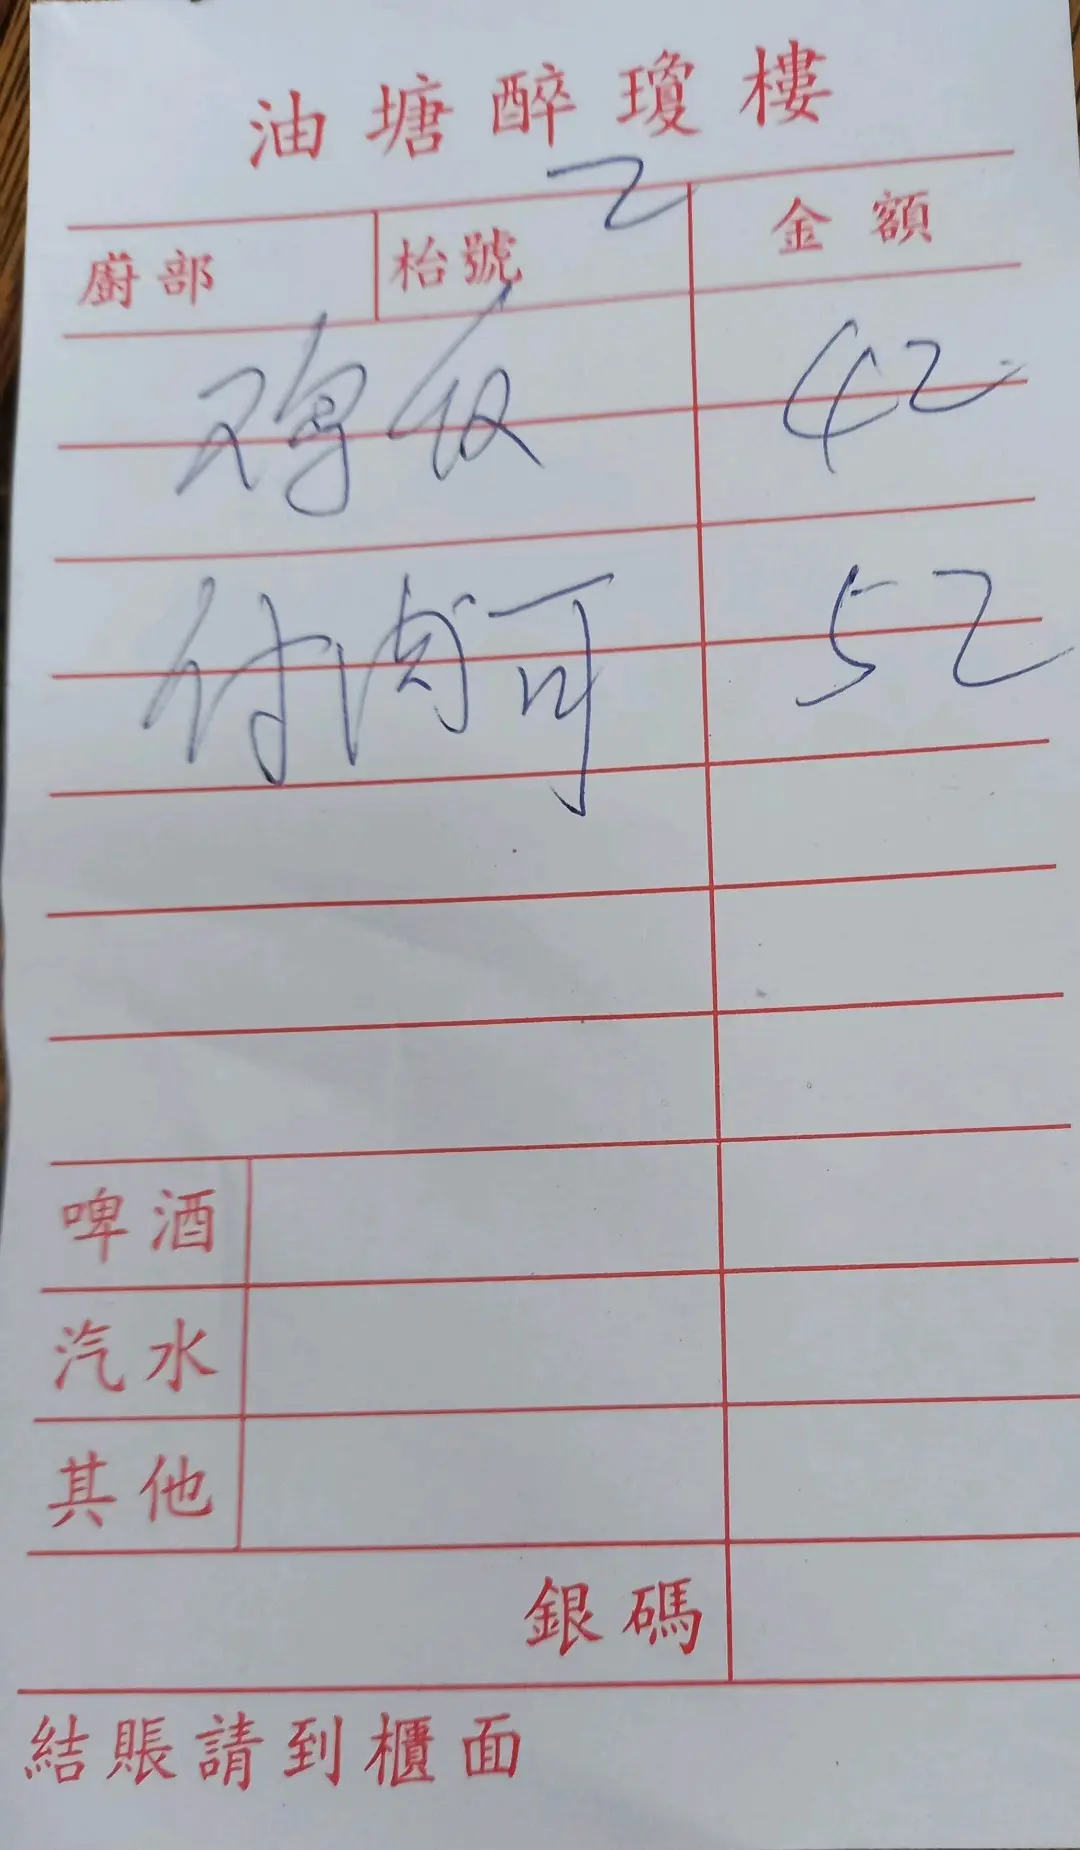 油塘醉瓊樓
廚部 枱號 2 金額
鸡飯 42
付肉可 52
啤酒
汽水
其他
銀碼
結賬請到櫃面